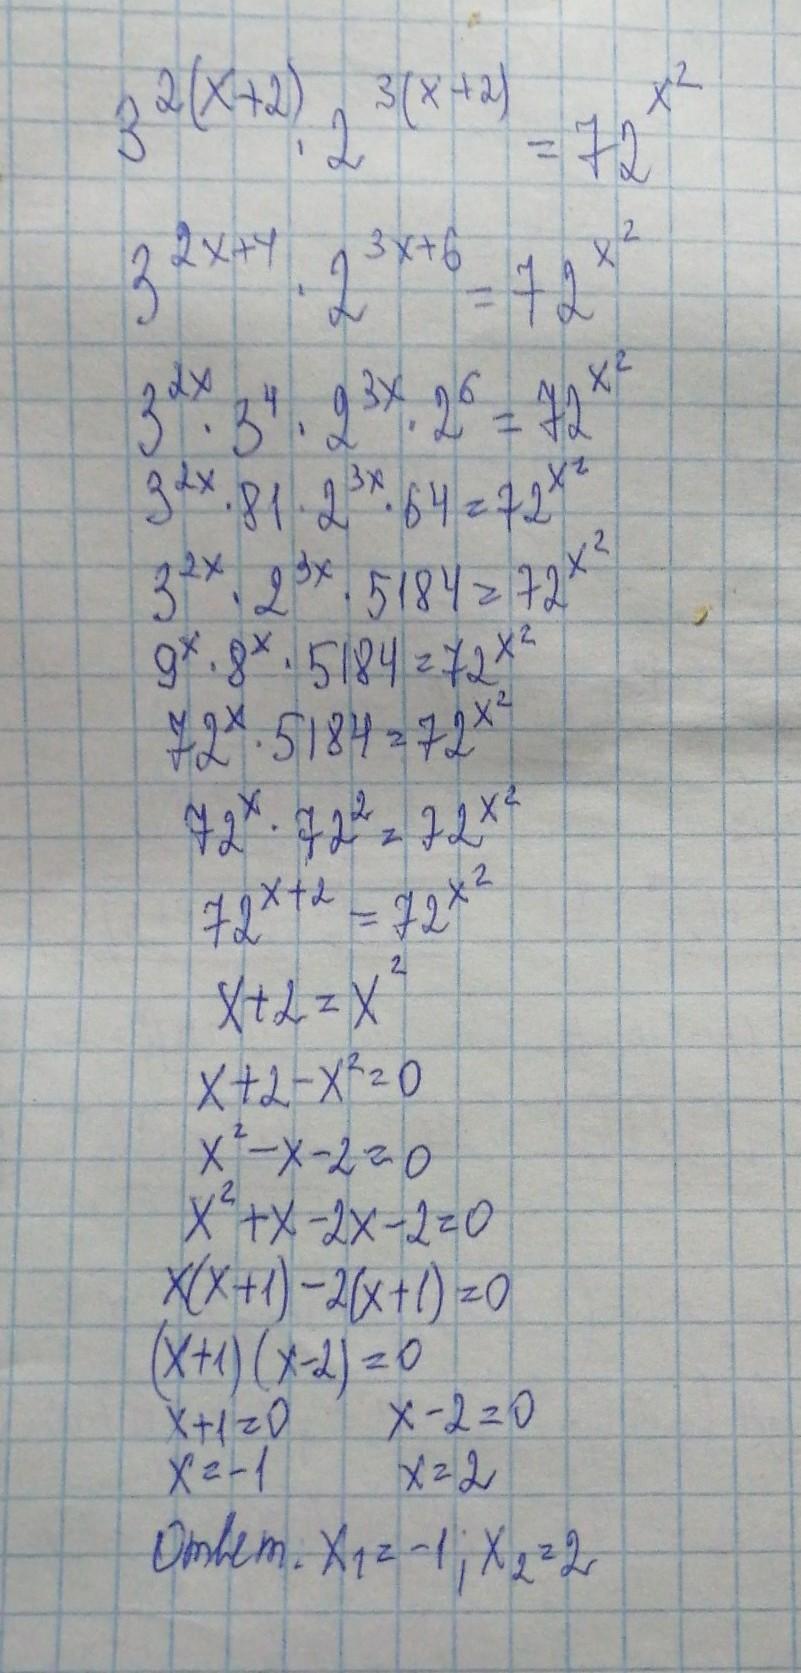 3^{2(x+2)} · 2^{3(x+2)} = 72^{x^2}
3^{2x+4} · 2^{3x+6} = 72^{x^2}
3^{2x} · 3^4 · 2^{3x} · 2^6 = 72^{x^2}
3^{2x} · 81 · 2^{3x} · 64 = 72^{x^2}
3^{2x} · 2^{3x} · 5184 = 72^{x^2}
9^x · 8^x · 5184 = 72^{x^2}
72^x · 5184 = 72^{x^2}
72^x · 72^2 = 72^{x^2}
72^{x+2} = 72^{x^2}
x+2 = x^2
x+2-x^2=0
x^2-x-2=0
x^2+x-2x-2=0
x(x+1)-2(x+1)=0
(x+1)(x-2)=0
x+1=0 x-2=0
x=-1 x=2
Ответ. x_1=-1; x_2=2